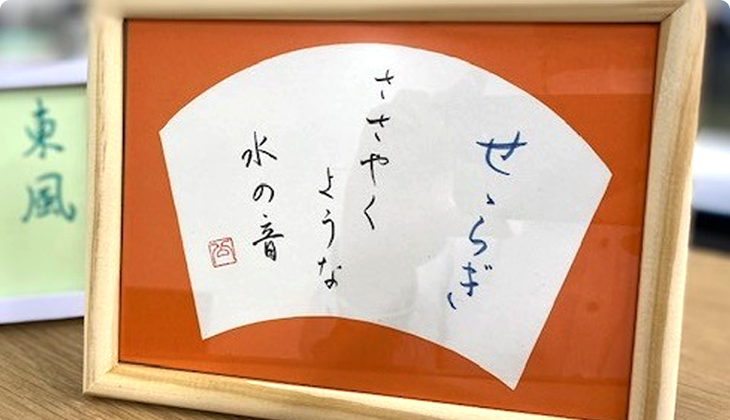 せゝらぎ
ささやく
ような
水の音
東風